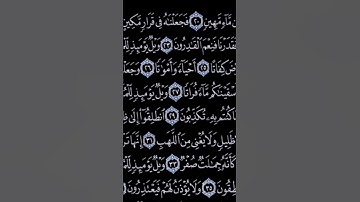 ن مَّآءٍ مَّهِينٍ ٢٠ فَجَعَلْنَٰهُ فِى قَرَارٍ مَّكِينٍ
فَقَدَرْنَا فَنِعْمَ ٱلْقَٰدِرُونَ ٢٣ وَيْلٌ يَوْمَئِذٍ لِّلْمُ
ضَ كِفَاتًا ٢٥ أَحْيَآءً وَأَمْوَٰتًا ٢٦ وَجَعَلْ
سْقَيْنَٰكُم مَّآءً فُرَاتًا ٢٧ وَيْلٌ يَوْمَئِذٍ لِّلْ
مَا كُنتُم بِهِۦ تُكَذِّبُونَ ٢٩ ٱنطَلِقُوٓا۟ إِلَىٰ ظِ
ظَلِيلٍ وَلَا يُغْنِى مِنَ ٱللَّهَبِ ٣١ إِنَّهَا تَرْ
كَأَنَّهُۥ جِمَٰلَتٌ صُفْرٌ ٣٣ وَيْلٌ يَوْمَئِذٍ لِّلْ
طِقُونَ ٣٥ وَلَا يُؤْذَنُ لَهُمْ فَيَعْتَذِرُونَ ٣٦